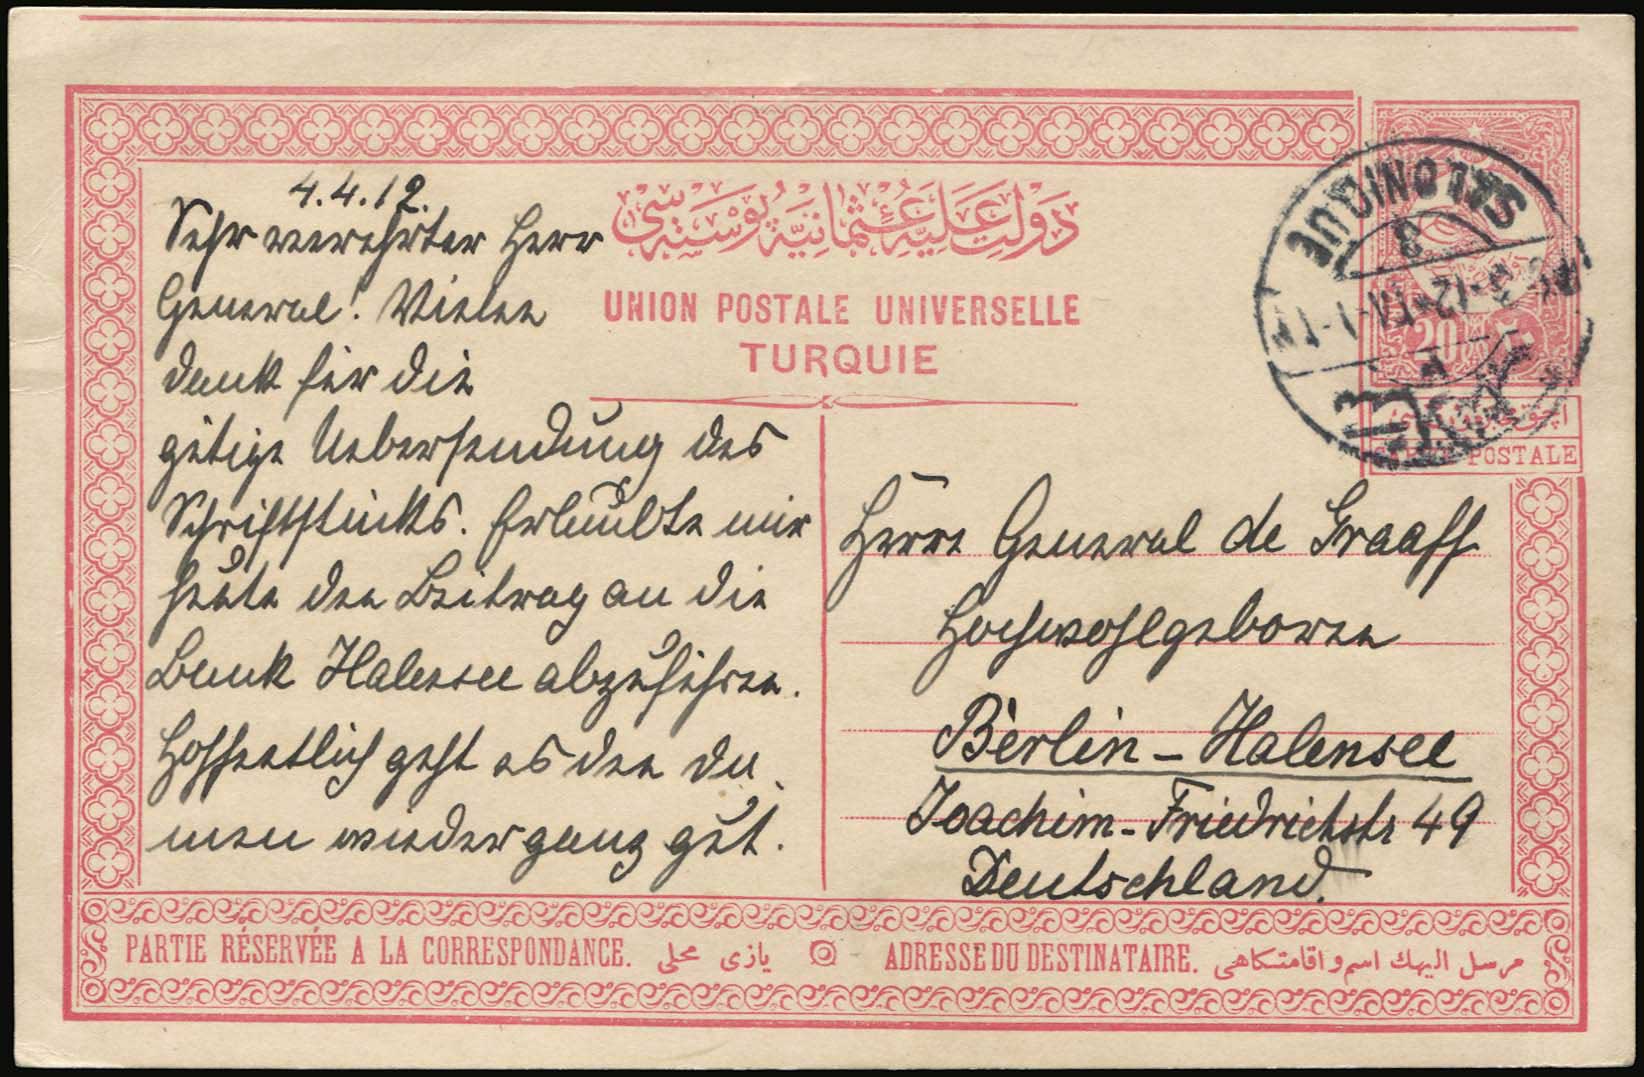 4.4.12.
Sehr verehrter Herr
General! Vielen
Dank für die
gütige Uebersendung des
Schriftstücks. Erlaubte mir
heute den Beitrag an die
Bank Halensee abzuführen.
Hoffentlich geht es den Da
men wieder ganz gut.
دولت عليه عثمانيه پوسته سی
UNION POSTALE UNIVERSELLE
TURQUIE
SALONIQUE
3
20
CARTE POSTALE
Herrn General de Graaff
Hochwohlgeboren
Berlin - Halensee
Joachim-Friedrichstr 49
Deutschland.
PARTIE RÉSERVÉE A LA CORRESPONDANCE. يازی محلی
ADRESSE DU DESTINATAIRE. مرسل اليهك اسم و اقامتكاهی